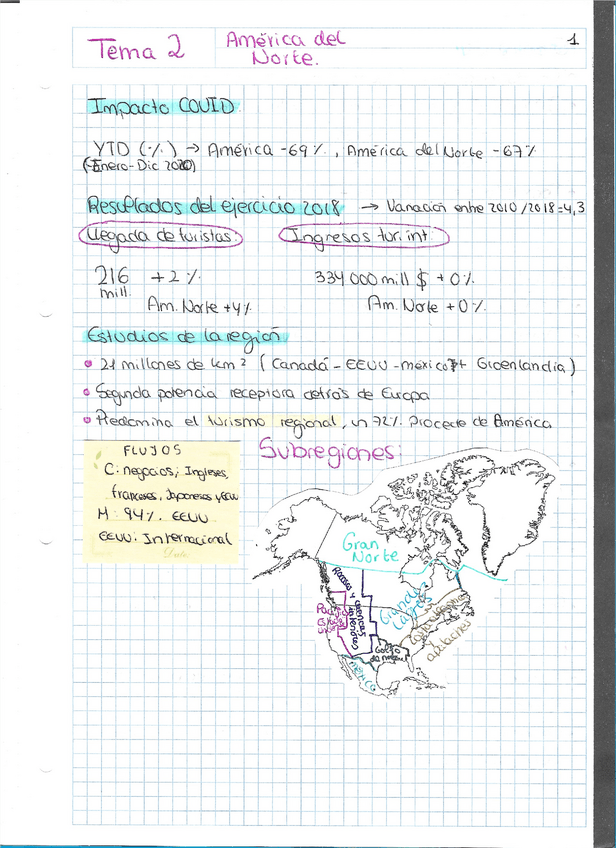 Tema 2
América del
Norte.
1
Impacto COVID
YTD (%) → América -69%, América del Norte -67%
(Enero-Dic 2020)
Resultados del ejercicio 2018 → Variación entre 2010/2018=4,3
Llegada de turistas:
Ingresos tur. int.
216 mill. +2%
334 000 mill $ +0%
Am. Norte +4%
Am. Norte +0%
Estudios de la región
• 21 millones de km² (Canadá - EEUU - méxico + Groenlandia)
• Segunda potencia receptora detrás de Europa
• Predomina el turismo regional, un 72% Procede de América
FLUJOS
C: negocios; Ingleses,
franceses, Japoneses y EEUU
M: 94% EEUU
EEUU: Internacional
Subregiones:
Gran
Norte
Rocosas y cuencas interiores
Grandes
Lagos
Golfo
de méxico
méxico
apalaches